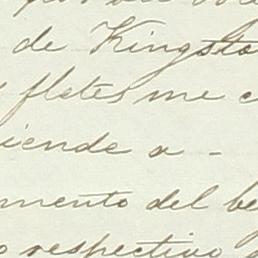 de Kingsto
fletes me c
iende a -
mento del be
o respectivo